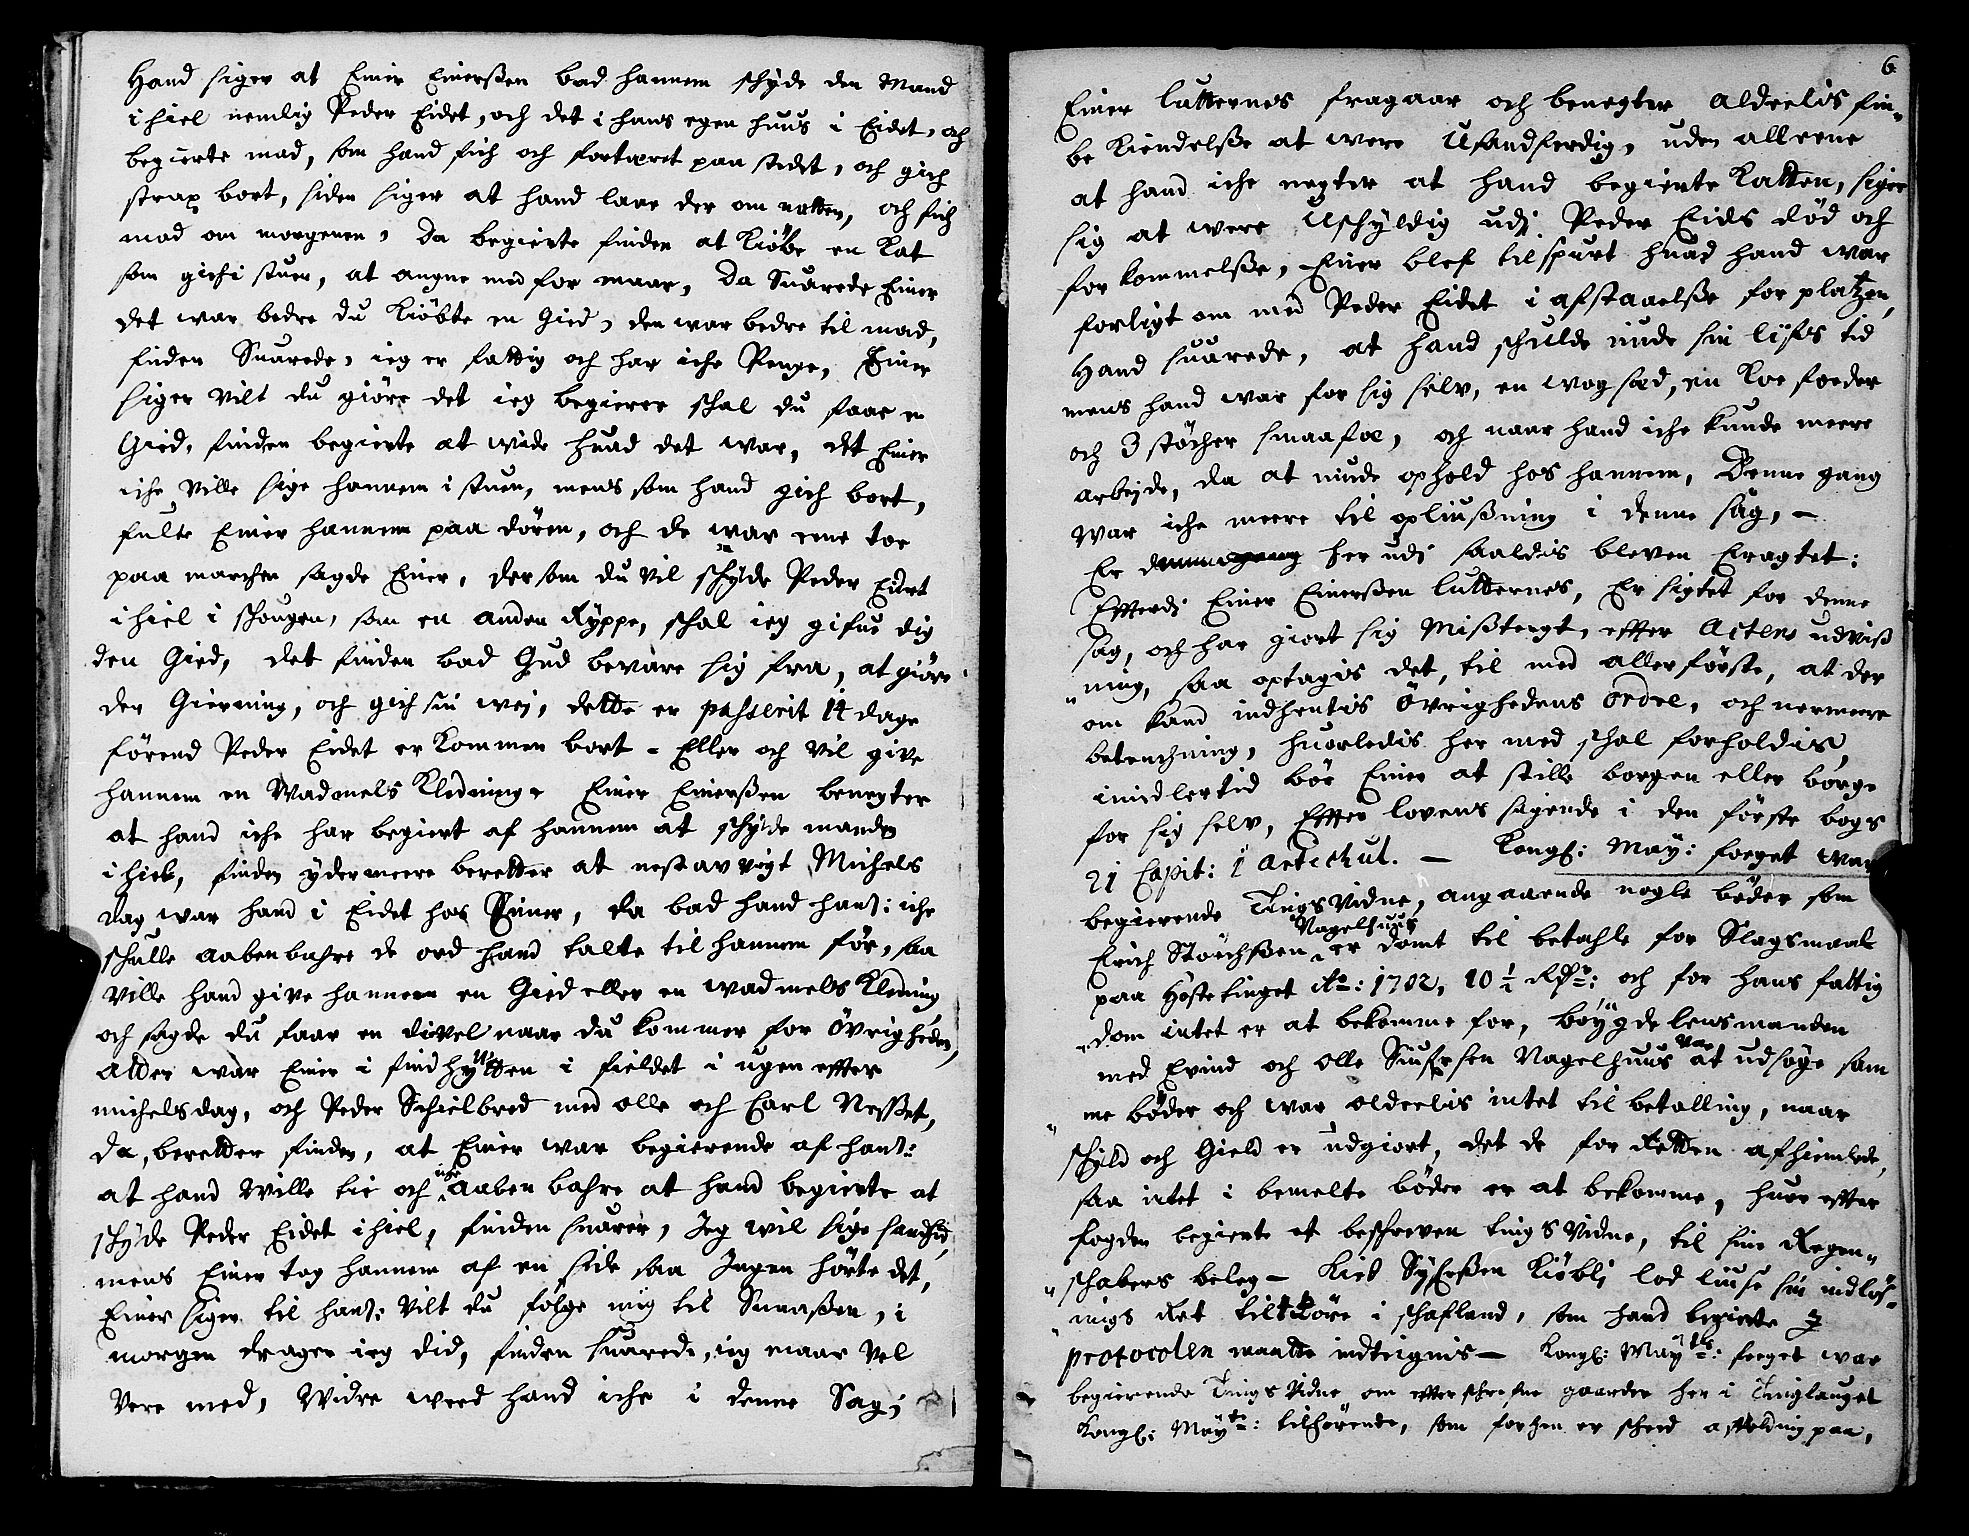 Hand siger at Einer Einerßen bad hannem schyde den Mand
ihiel nemlig Peder Eidet, och det i hans egen huus i Eidet, och
begierte mad, som hand fich och fortæret paa stedet, och gich
strax bort, siden siger at hand laae der om natten, och fich
mad om morgenen, Da begierte finden at kiöbe en Kat
som gich i stuen, at angne med for maar, Da Suarede Einer
det war bedre du kiöbte en Gied, den war bedre til mad,
finden Suarede, ieg er fattig och har iche Penge, Einer
siger vilt du giöre det ieg begierer schal du faae en
Gied, finden begierte at wide huad det war, det Einer
iche ville sige hannem i stuen, mens som hand gich bort,
fulte Einer hannem paa dören, och da war ene toe
paa marchen sagde Einer, dersom du vil schyde Peder Eidet
ihiel i schougen, som en anden Ryppe, schal ieg gifue dig
den Gied, det finden bad Gud bevare sig fra, at giöre
den Gierning, och gich sin wej, dette er passerit 14 dage
förend Peder Eidet er kommen bort - Eller och vil give
hannem en Wadmels Kledning, Einer Einerßen benegter
at hand iche har begiert af hannem at schyde manden
ihiel, finden ydermeere beretter at nestavvigt Michels
dag war hand i Eidet hos Einer, da bad hand hans: iche
schulle aabenbahre de ord hand talte til hannem för, saa
ville hand give hannem en Gied eller en wadmels Kledning
och sagde du faar en divel naar du kommer for övrigheden,
atter war Einer i findhytten i fieldet i ugen effter
michelsdag, och Peder Schielbred med olle och Carl Neßet,
da, beretter finden, at Einer war begierende af hans:
at hand wille tie och iche aabenbahre at hand begierte at
schyde Peder Eidet ihiel, finden suarer, Jeg wil sige sandhed,
mens Einer tog hannem af en side saa Ingen hörte det,
Einer siger til hans: vilt du fölge mig til Snaaßen, i
morgen drager ieg did, finden suarede, ieg maae vel
vere med, Widre weed hand iche i denne Sag;
6.
Einer lutternes fragaar och benegter aldeelis fin-
be kiendelße at were Usandferdig, uden alleene
at hand iche negter at hand begierte Katten, siger
sig at were Uschyldig udj Peder Eids död och
forkommelße, Einer blef tilspurt huad hand war
forligt om med Peder Eidet i afstaaelße for platzen,
Hand suarede, at hand schulde niude sin lifs tid
mens hand war for sig selv, en wog sæd, en Koe foeder
och 3 stöcher smaafoe, och naar hand iche kunde meere
arbejde, da at niude ophold hos hannem, Denne gang
war iche meere til opliußning i denne sag, -
Er her udj saaledis bleven Eragtet:
Effterdi Einer Einerßen lutternes, Er sigtet for denne
sag, och har giort sig Mißtengt, effter Actens udviß
ning, saa optagis det, til med allerförste, at der
om kand indhentis Övrighedens ordre, och nermere
betenchning, huorledis her med schal forholdis
imidlertid bör Einer at stille borgen eller börge
for sig selv, Effter lovens sigende i den förste bogs
21 Capit: 1 Artichul. - Kongl: May: foeget war
begierende Tings vidne, angaaende nogle böder som
Erich Störchßen Nagelhuus er dömt til betahle for Slagsmaal
paa Höstetinget Ao: 1702, 10½ Rdr: och for hans fattig
dom intet er at bekomme for, böygdelensmanden
med Evind och olle Siursen Nagelhuus var at udsöge sam
me böder och war aldeelis intet til betalling, naar
schyld och Gield er udgiort, det de for Retten afhiemlede,
saa intet i bemelte böder er at bekomme, huor effter
fogden begierte et beschreven tings vidne, til sine Regen-
schabers beleg - Kield Syfersßen Kiöblj lod liuse sin indlös-
nings Ret til i schafland, som hand begierte j
protocolen maatte indteignis - Kongl: Mayts: foeget war
begierende Tings vidne om effterschrefne gaarder her i Tinglauget
Kongl: Mayts: tilhörende, som forhen er scheed anmelding paa,